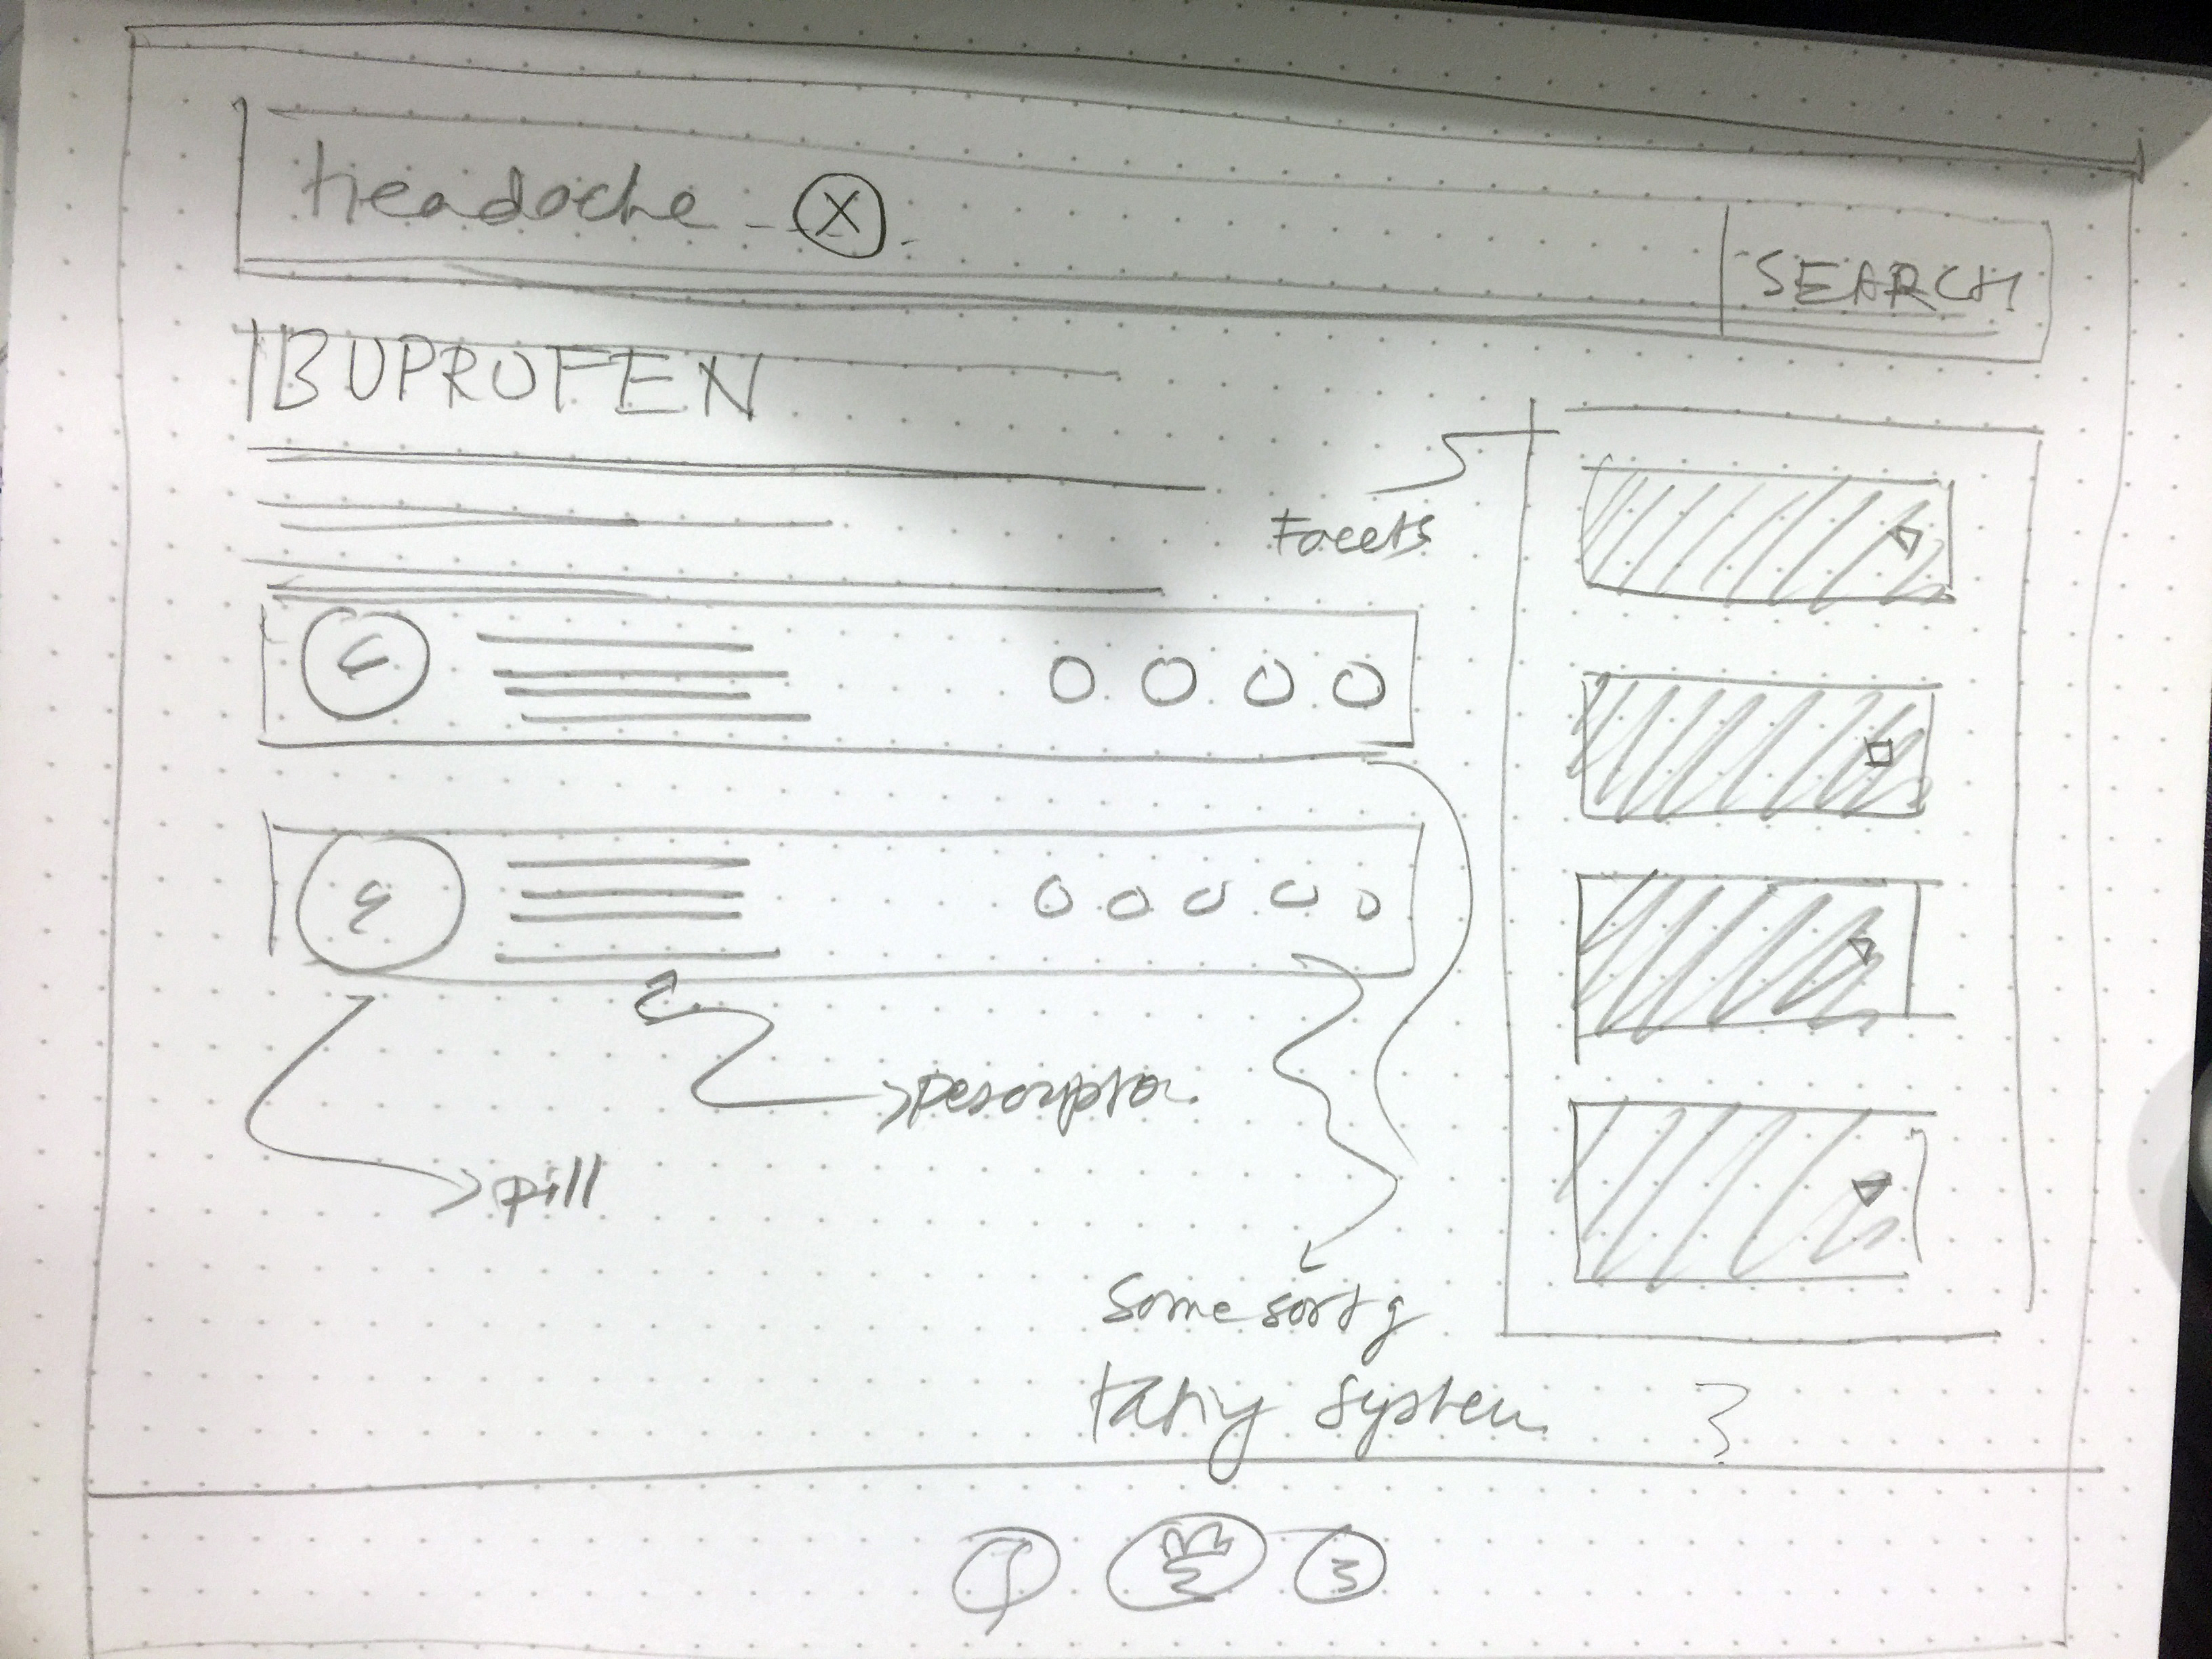 headache X
SEARCH
IBUPROFEN
Facets
Descriptor.
pill
Some sort of
rating system ?
3